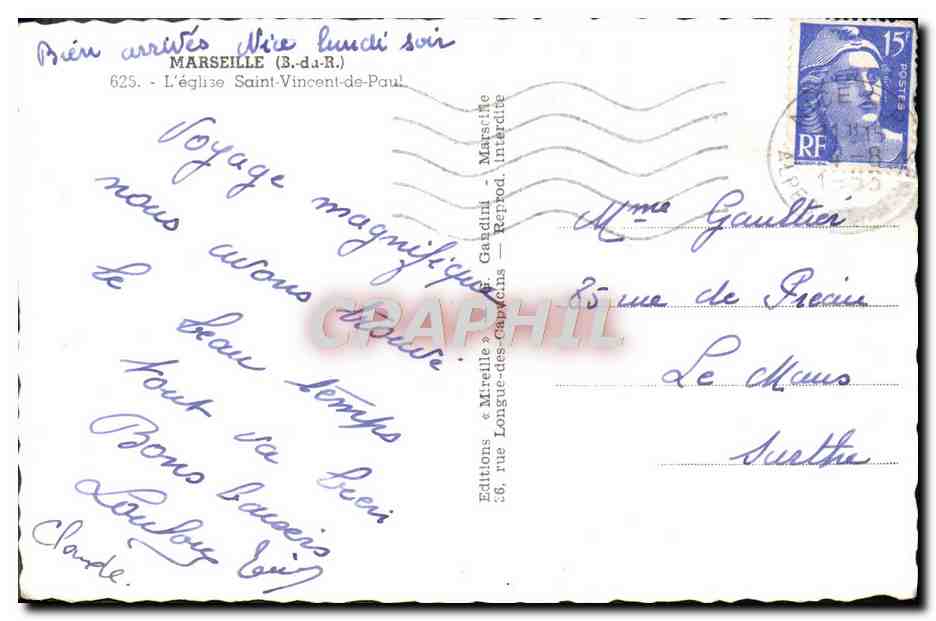 Bien arrivés Nice lundi soir
MARSEILLE (B.-du-R.)
625. - L'église Saint-Vincent-de-Paul
Voyage magnifique
nous avons trouvé
le
beau temps
tout va bien
Bons baisers
Loulou
Claude.
Editions « Mireille » G. Gandini - Marseille
36, rue Longue-des-Capucins — Reprod. Interdite
15F
POSTES
RF
Mme Gaultier
85 rue de
Le Mans
Sarthe
CRAPHIL